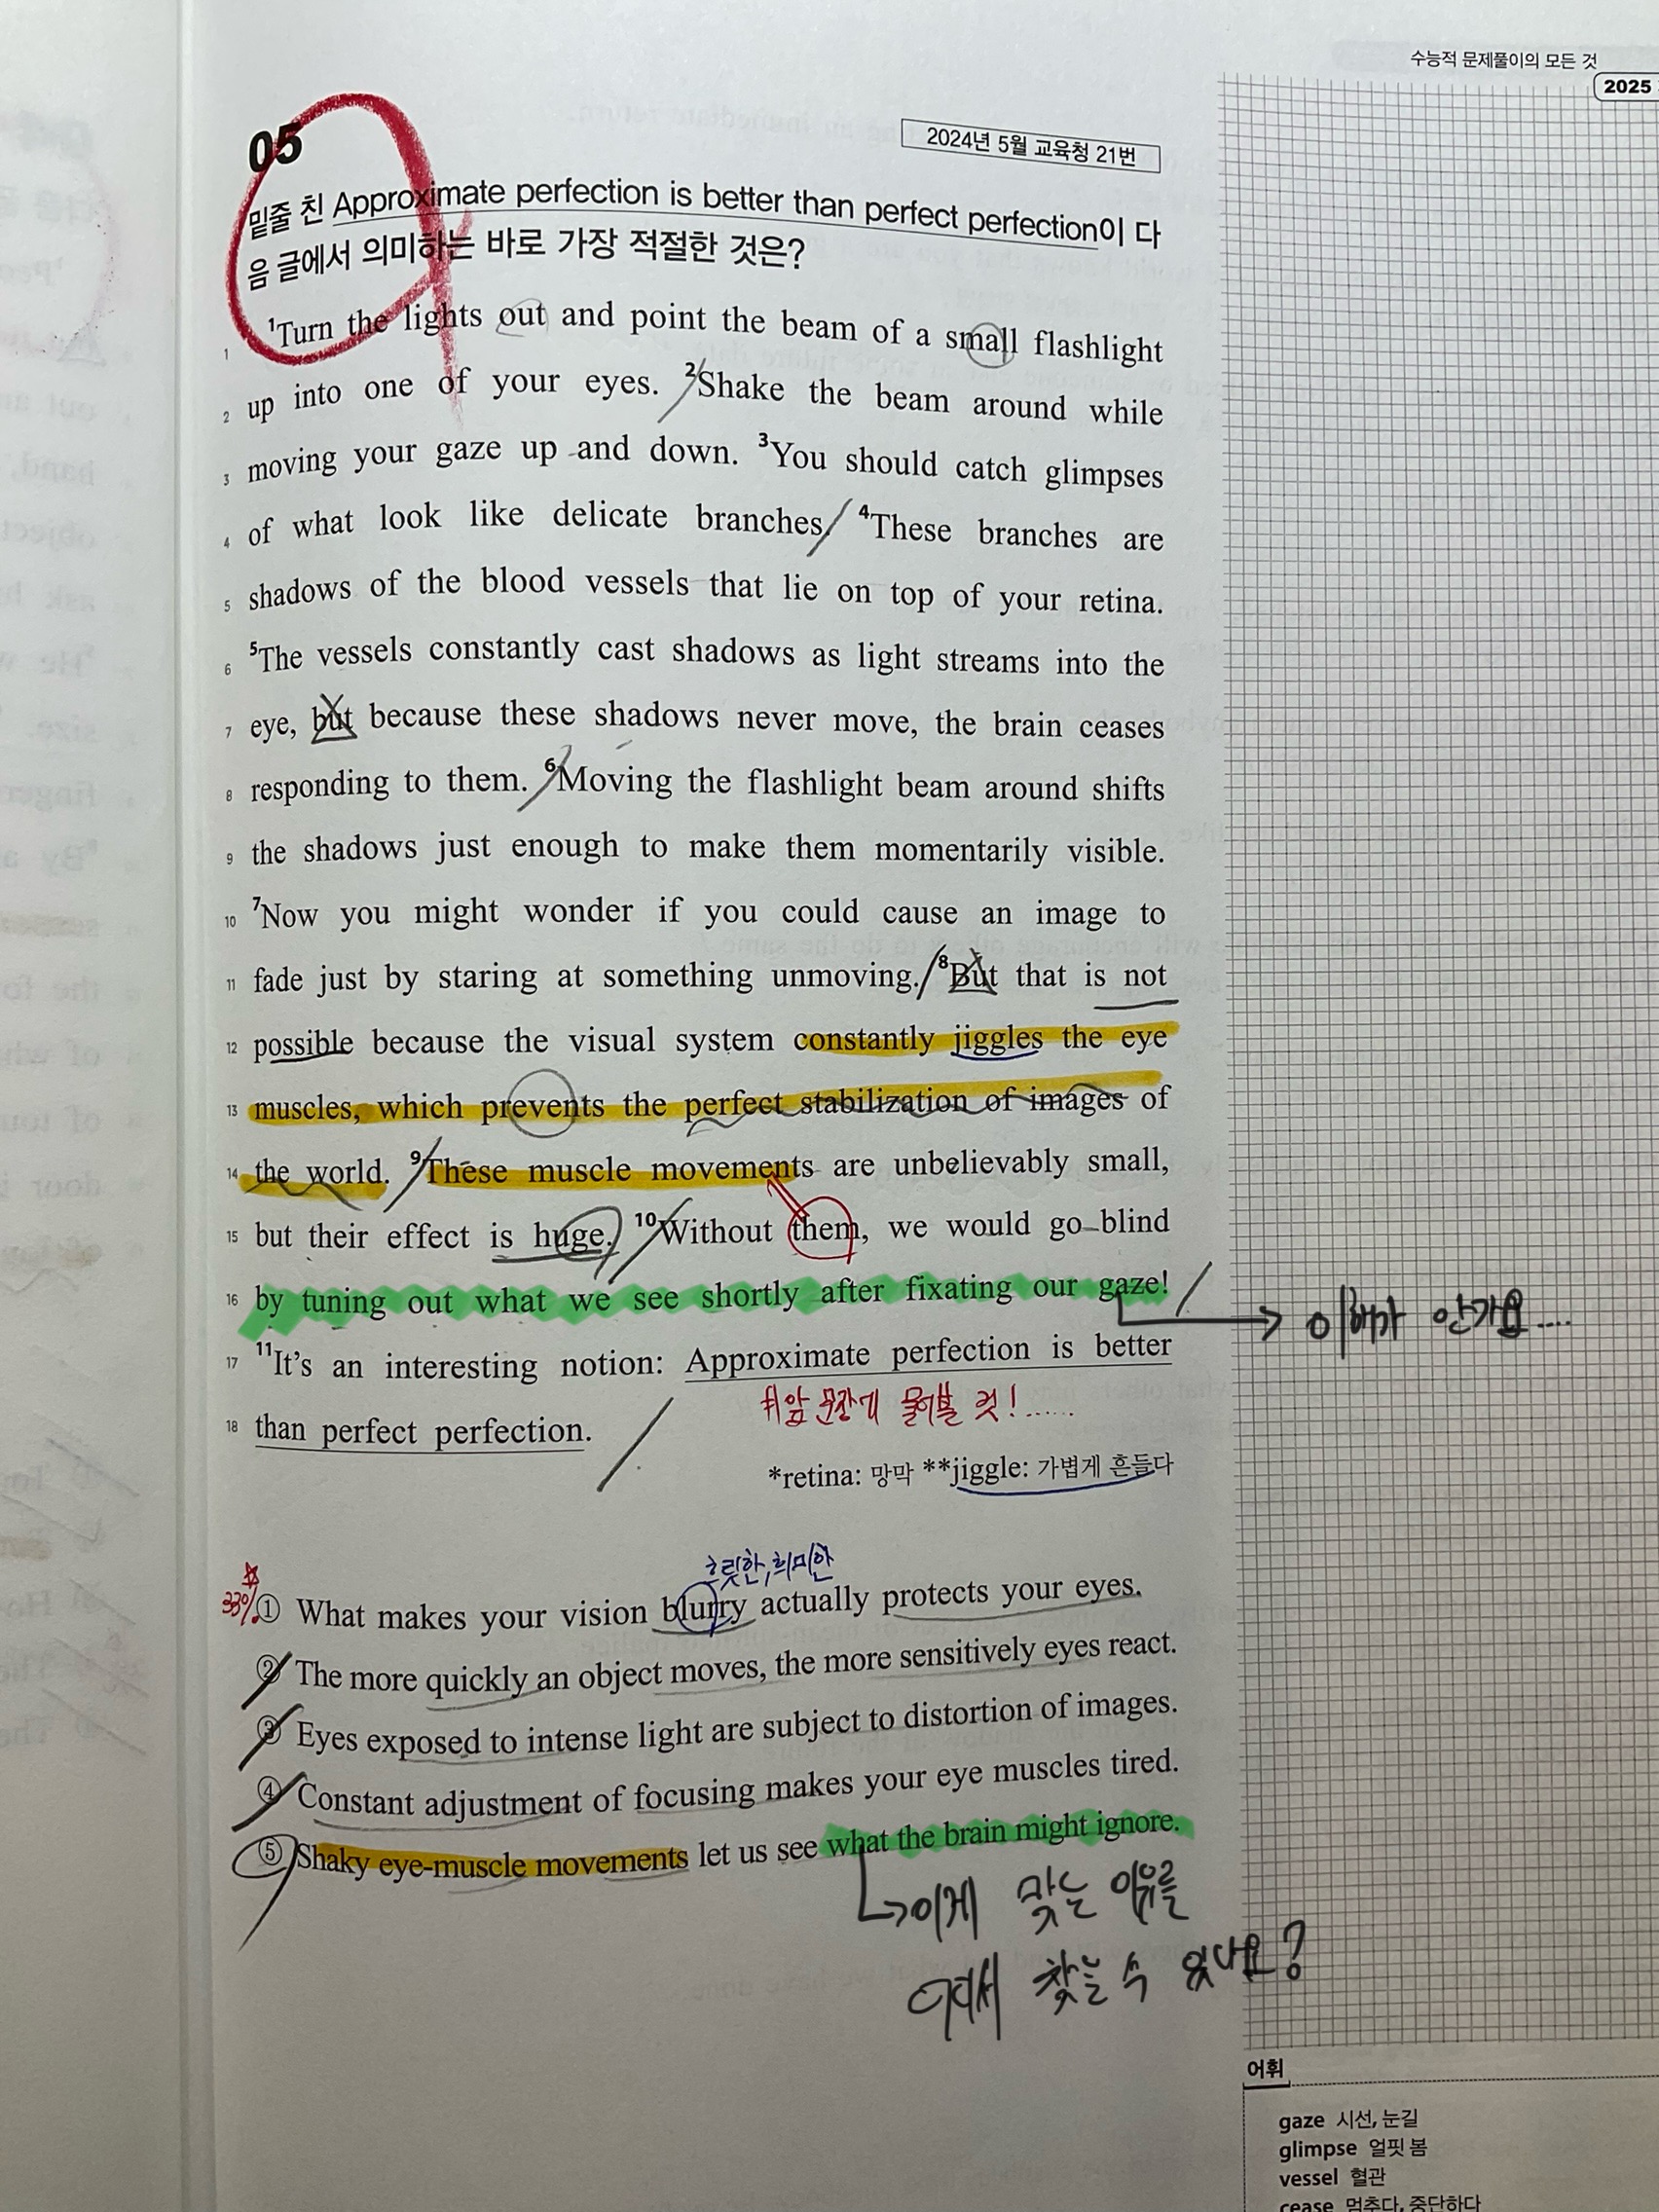 수능적 문제풀이의 모든 것
2025
05
2024년 5월 교육청 21번
밑줄 친 Approximate perfection is better than perfect perfection이 다
음 글에서 의미하는 바로 가장 적절한 것은?
1 ¹Turn the lights out and point the beam of a small flashlight
2 up into one of your eyes. ²Shake the beam around while
3 moving your gaze up and down. ³You should catch glimpses
4 of what look like delicate branches. ⁴These branches are
5 shadows of the blood vessels that lie on top of your retina.
6 ⁵The vessels constantly cast shadows as light streams into the
7 eye, but because these shadows never move, the brain ceases
8 responding to them. ⁶Moving the flashlight beam around shifts
9 the shadows just enough to make them momentarily visible.
10 ⁷Now you might wonder if you could cause an image to
11 fade just by staring at something unmoving. ⁸But that is not
12 possible because the visual system constantly jiggles the eye
13 muscles, which prevents the perfect stabilization of images of
14 the world. ⁹These muscle movements are unbelievably small,
15 but their effect is huge. ¹⁰Without them, we would go blind
16 by tuning out what we see shortly after fixating our gaze!
이해가 안가요....
17 ¹¹It's an interesting notion: Approximate perfection is better
앞 문장에 물어볼 것!......
18 than perfect perfection.
*retina: 망막 **jiggle: 가볍게 흔들다
흐릿한, 희미한
33% ① What makes your vision blurry actually protects your eyes.
② The more quickly an object moves, the more sensitively eyes react.
③ Eyes exposed to intense light are subject to distortion of images.
④ Constant adjustment of focusing makes your eye muscles tired.
⑤ Shaky eye-muscle movements let us see what the brain might ignore.
이게 맞는 이유를
어디서 찾을 수 있나요?
어휘
gaze 시선, 눈길
glimpse 얼핏 봄
vessel 혈관
cease 멈추다, 중단하다